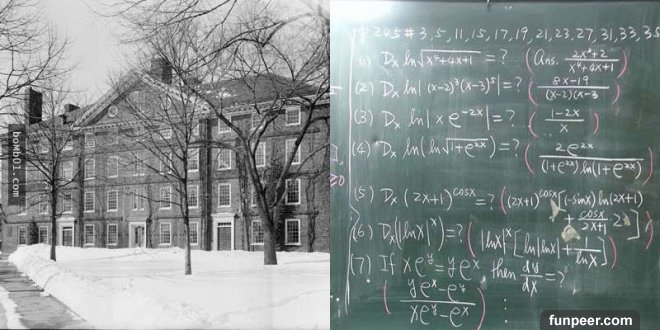 P.245 # 3, 5, 11, 15, 17, 19, 21, 23, 27, 31, 33, 35
(1) Dx ln√(x⁴+4x+1) = ? (Ans. (2x³+2)/(x⁴+4x+1))
(2) Dx ln|(x-2)³(x-3)⁵| = ? ((8x-19)/((x-2)(x-3))
(3) Dx ln|x e^(-2x)| = ? ((1-2x)/x)
(4) Dx ln(ln√(1+e^(2x))) = ? (2e^(2x)/((1+e^(2x)) ln(1+e^(2x))))
(5) Dx (2x+1)^(cosx) = ? ((2x+1)^(cosx)[(-sinx) ln(2x+1) + cosx/(2x+1)·2])
(6) Dx(|lnx|^x) = ? (|lnx|^x [ln|lnx| + 1/lnx])
(7) If xe^y = ye^x, then dy/dx = ?
((ye^x - e^y)/(xe^y - e^x))
book01.com
funpeer.com